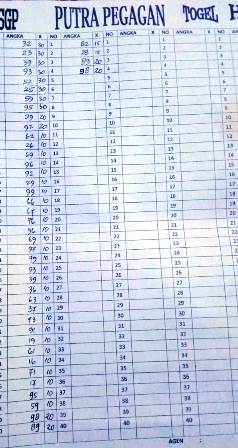 SGP PUTRA PEGAGAN TOGEL H
ANGKA X NO ANGKA X NO ANGKA X NO
32 30 1 82 15 1 1
23 30 2 28 15 2 2
39 30 3 89 20 3 3
93 30 4 98 20 4 4
52 30 5 5 5
25 30 6 6 6
59 30 7 7 7
95 30 8 8 8
29 20 9 9 9
92 20 10 10 10
62 10 11 11 11
26 10 12 12 12
69 10 13 13 13
96 10 14 14 14
10 15 15 15
29 10 16 16 16
99 10 17 17 17
66 10 18 18 18
67 10 19 19 19
76 10 20 20 20
96 10 21 21 21
69 10 22 22 22
97 10 23 23 23
79 10 24 24 24
93 10 25 25 25
39 10 26 26 26
36 10 27 27 27
63 10 28 28 28
37 10 29 29 29
73 10 30 30 30
91 10 31 31 31
19 10 32 32 32
61 10 33 33 33
16 10 34 34 34
71 10 35 35 35
17 10 36 36 36
95 10 37 37 37
59 10 38 38 38
98 20 39 39 39
89 20 40 40 40
AGEN :